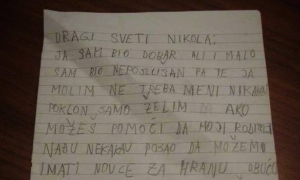 DRAGI SVETI NIKOLA,
JA SAM BIO DOBAR ALI I MALO
SAM BIO NEPOSLUŠAN PA TE JA
MOLIM NE TREBA MENI NIKAKAV
POKLON SAMO ŽELIM DA AKO
MOŽEŠ POMOĆI DA MOJI RODITELJI
NAĐU NEKAKAV POSAO DA MOŽEMO
IMATI NOVCE ZA HRANU, OBUĆU